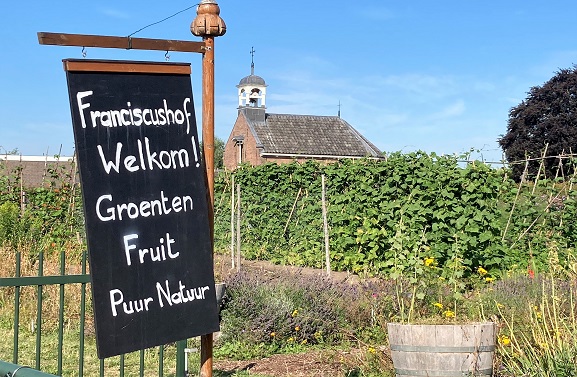 Franciscushof
Welkom!
Groenten
Fruit
Puur Natuur